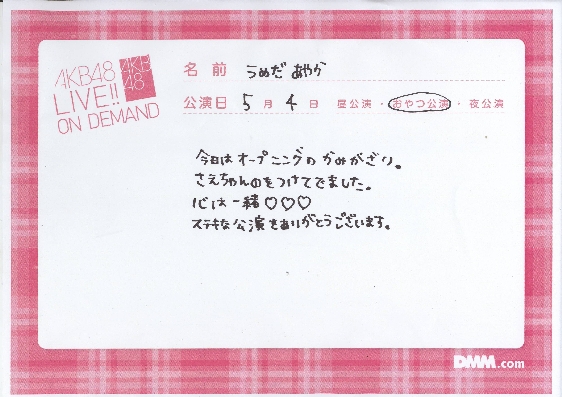 AKB48
LIVE!!
ON DEMAND
AKB
48
名前 うめだ あやか
公演日 5月4日 昼公演・おやつ公演・夜公演
今日はオープニングのかみかざり。
さえちゃんのをつけてでました。
心は一緒♡♡♡
ステキな公演をありがとうございます。
DMM.com